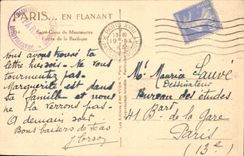 PARIS... EN FLANANT
Sacré-Coeur de Montmartre
Entrée de la Basilique
Vous avez trouvé ta
lettre hessoir. Ne vous
tourmentez pas.
Marguerite est dans
sa famille et nous
ne la verrons pas.
A demain soir
Bons baisers de tous
Mr Maurice Sauvé
Dessinateur
Bureau des études
Gart
41 B. de la Gare
Paris
(13e)